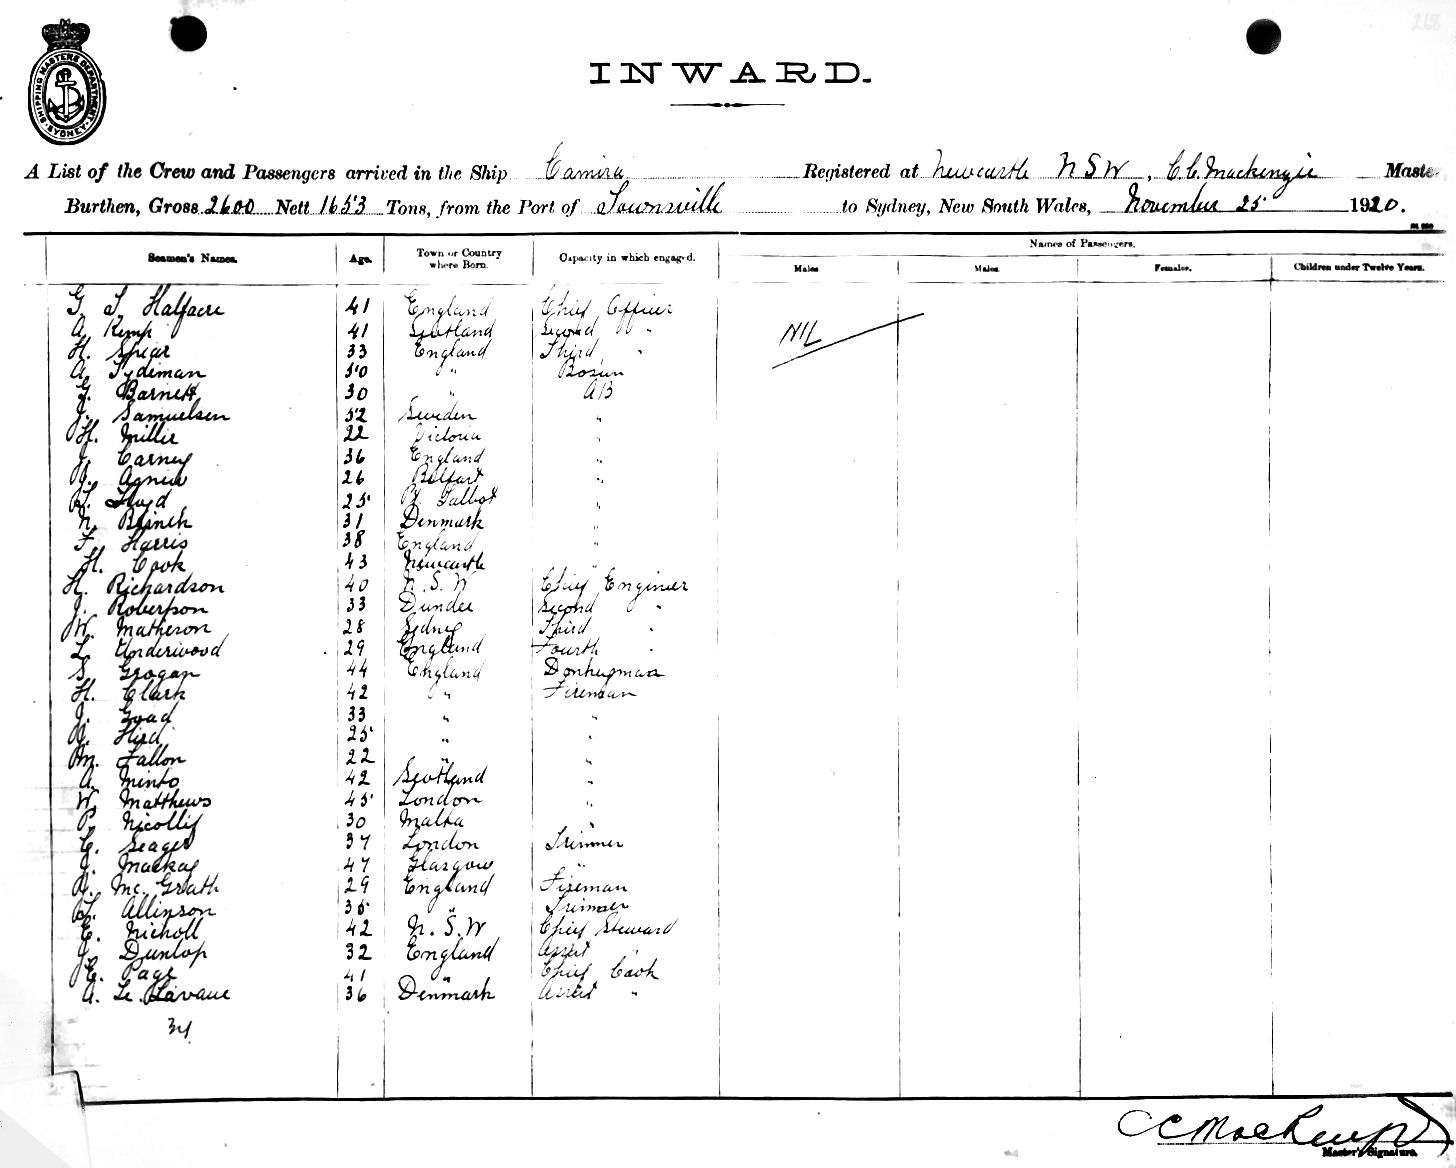 218
SHIPPING MASTERS DEPARTMENT
SYDNEY
INWARD.
A List of the Crew and Passengers arrived in the Ship Camira Registered at Newcastle NSW, C.C. Mackenzie Master
Burthen, Gross 2600 Nett 1653 Tons, from the Port of Townsville to Sydney, New South Wales, November 25 1920.
Seamen's Names. Age. Town or Country where Born. Capacity in which engaged. Names of Passengers.
Males Males. Females. Children under Twelve Years.
G. S. Halfacre 41 England Chief Officer
NIL
A. Kemp 41 Scotland Second "
H. Spear 33 England Third "
A. Tydeman 50 " Bosun
G. Barnett 30 " AB
J. Samuelsen 52 Sweden "
H. Miller 22 Victoria "
J. Carney 36 England "
J. Agnew 26 Belfast "
T. Lloyd 25 Pt. Talbot "
N. 31 Denmark "
F. Harris 38 England "
H. Cook 43 Newcastle "
H. Richardson 40 N.S.W Chief Engineer
J. Robertson 33 Dundee Second "
W. Matheron 28 Sydney Third "
L. Underwood 29 England Fourth "
S. Grogan 44 England Donkeyman
H. Clark 42 " Fireman
J. Goad 33 " "
25 " "
M. Fallon 22 " "
A. Minto 42 Scotland "
W. Matthews 45 London "
P. 30 Malta "
C. Seager 37 London Trimmer
J. Mackay 47 Glasgow "
R. Mc. Grath 29 England Fireman
Allinson 35 " Trimmer
E. Nicholl 42 N.S.W Chief Steward
J. Dunlop 32 England Assist "
E. Page 41 " Chief Cook
A. Le. 36 Denmark Assist "
34
C C Mackenzie
Master's Signature.